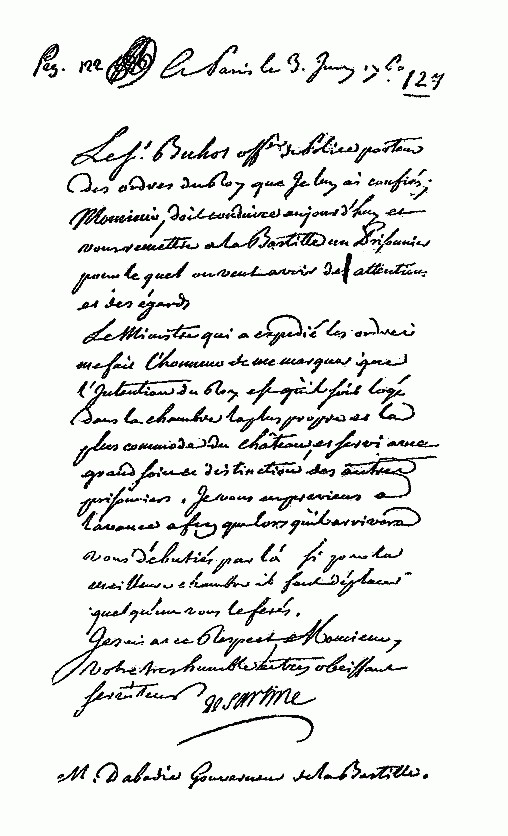 Pag. 122 a Paris le 3. Juin 127
Le Sr. Buhot offer. de Police porteur
des ordres du Roy que Je luy ai confiés,
Monsieur, doit conduire aujourd'huy et
vous remettre a la Bastille un Prisonnier
pour le quel on veut avoir des attentions
et des égards
Le Ministre qui a expedié les ordres
me fait l'honneur de me marquer que
l'Intention du Roy est qu'il soit logé
dans la chambre la plus propre et la
plus commode du château, et servi avec
grand soin et distinction des autres
prisonniers. Je vous en previens a
l'avance afin que lors qu'il arrivera
vous débutiés par là si pour la
meilleure chambre il faut déplacer
quelqu'un vous le ferés.
Je suis avec Respect Monsieur,
Votre tres humble et tres obeissant
serviteur De Sartine
M. Dabadie Gouverneur de la Bastille.